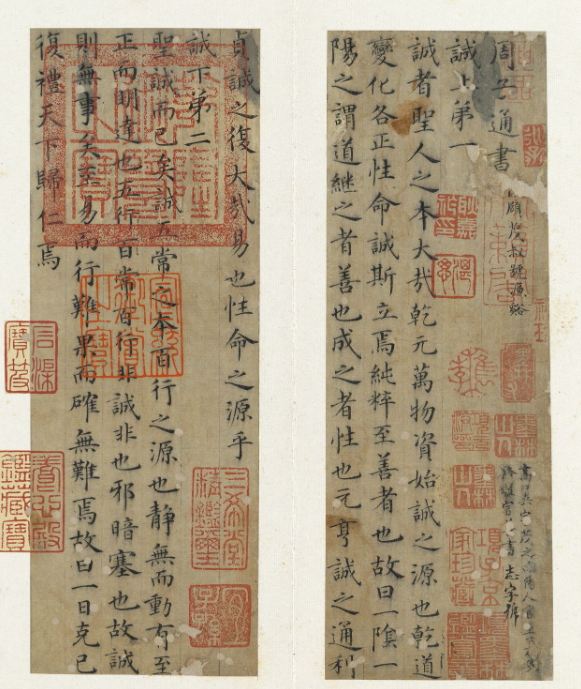 周子通書
誠上第一
誠者聖人之本大哉乾元萬物資始誠之源也乾道
變化各正性命誠斯立焉純粹至善者也故曰一陰一
陽之謂道繼之者善也成之者性也元亨誠之通利
項子京家珍藏
貞誠之復大哉易也性命之源乎
誠下第二
聖誠而已矣誠五常之本百行之源也靜無而動有至
正而明達也五行百常百行非誠非也邪暗塞也故誠
則無事矣至易而行難果而確無難焉故曰一日克己
復禮天下歸仁焉
三希堂精鑑璽
宜子孫
石渠寶笈
養心殿鑑藏寶